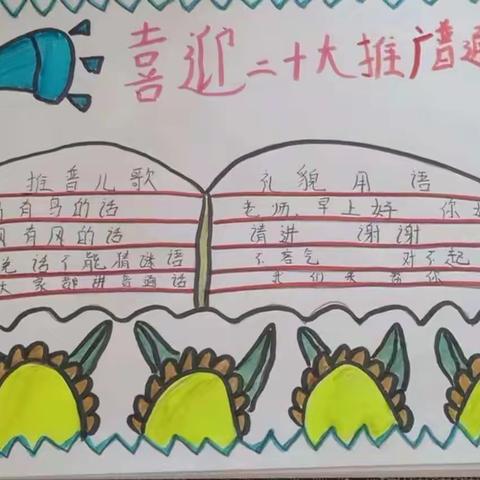 喜迎二十大推广普通
推普儿歌
有鸟的话
风有风的话
说话不能猜谜语
大家都讲普通话
礼貌用语
老师,早上好 你
请进 谢谢
不客气 对不起
我们来帮你